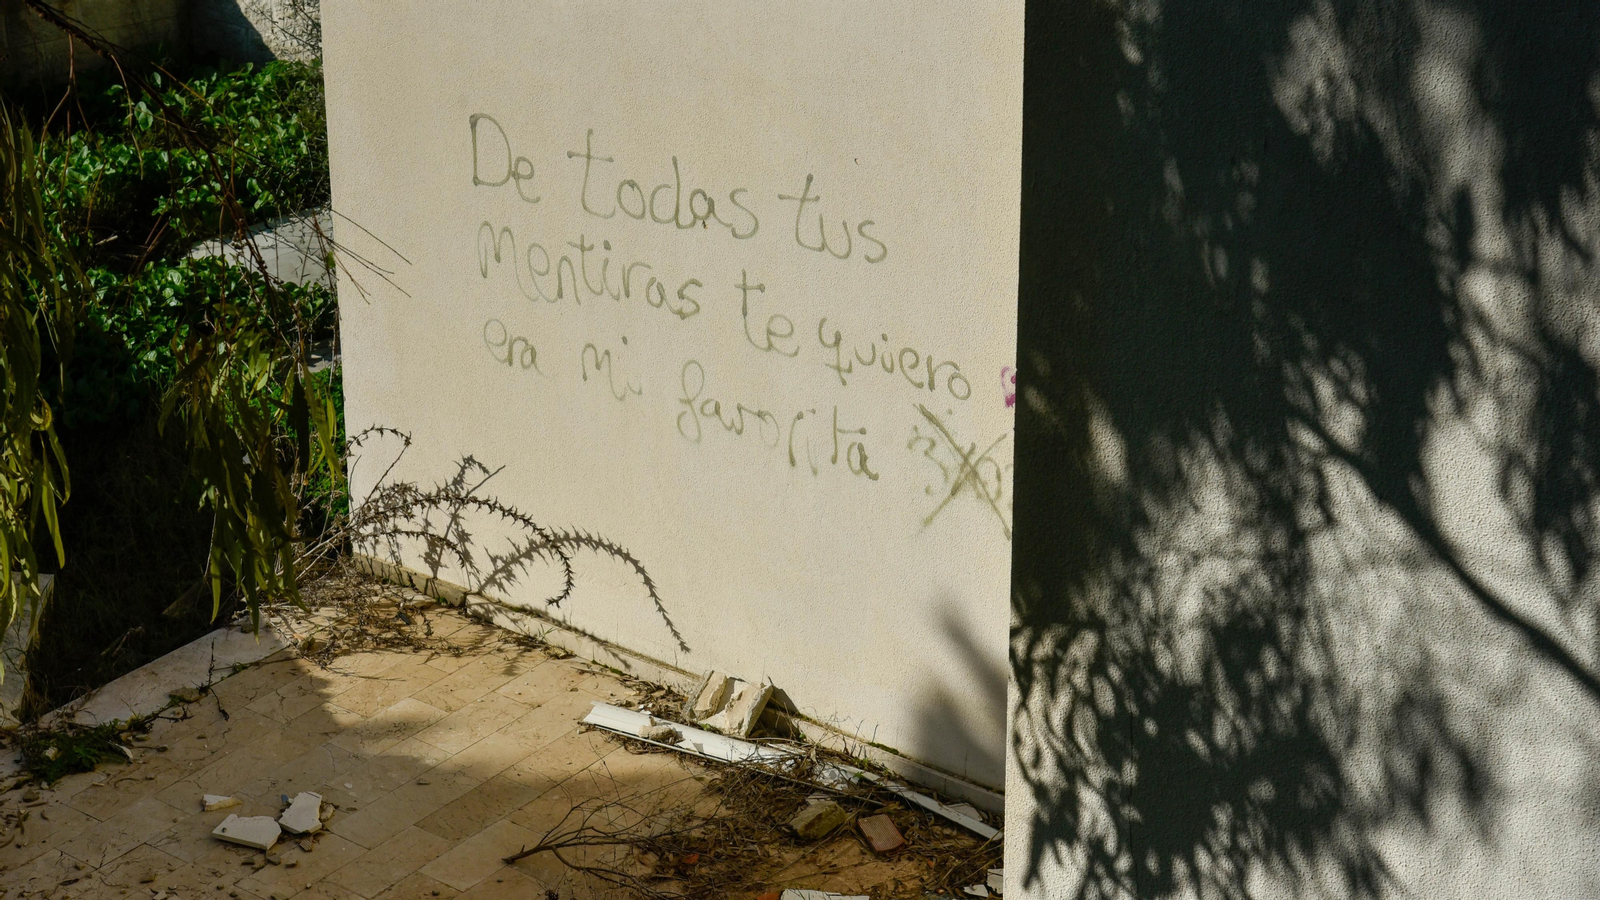 De todas tus
Mentiras te quiero
era mi favorita